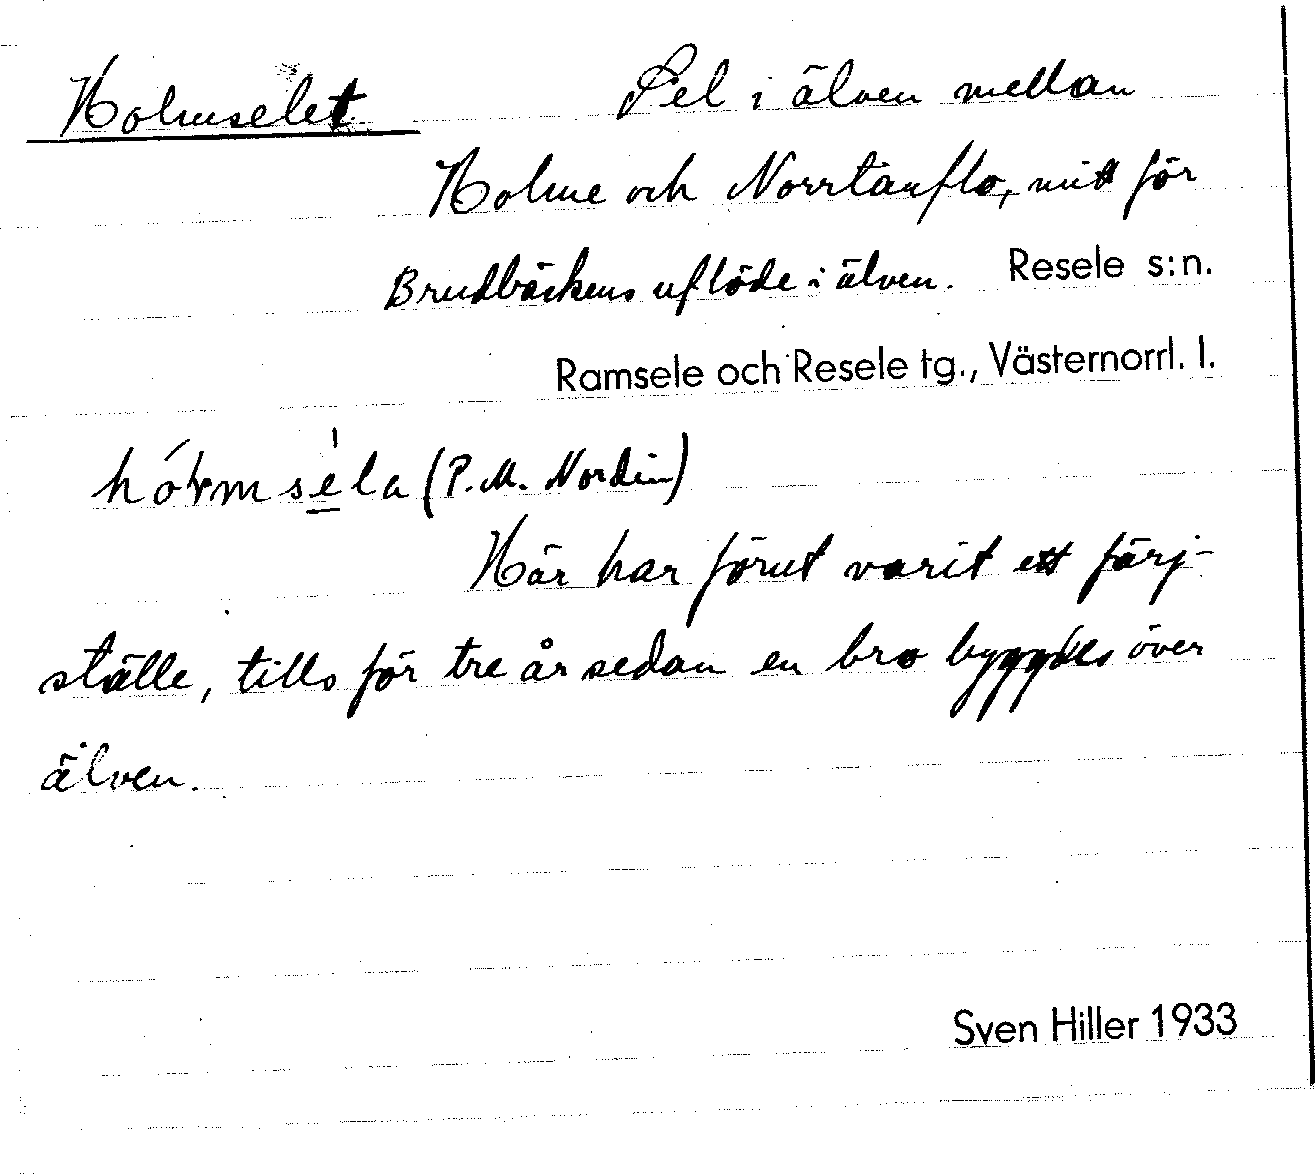 Holmselet Sel i älven mellan
Holme och Norrtanflo, mitt för
Brudbäckens uflöde i älven. Resele s:n.
Ramsele och Resele tg., Västernorrl. l.
(P.M. Nordin)
Här har förut varit ett färj-
ställe, tills för tre år sedan en bro byggdes över
älven.
Sven Hiller 1933